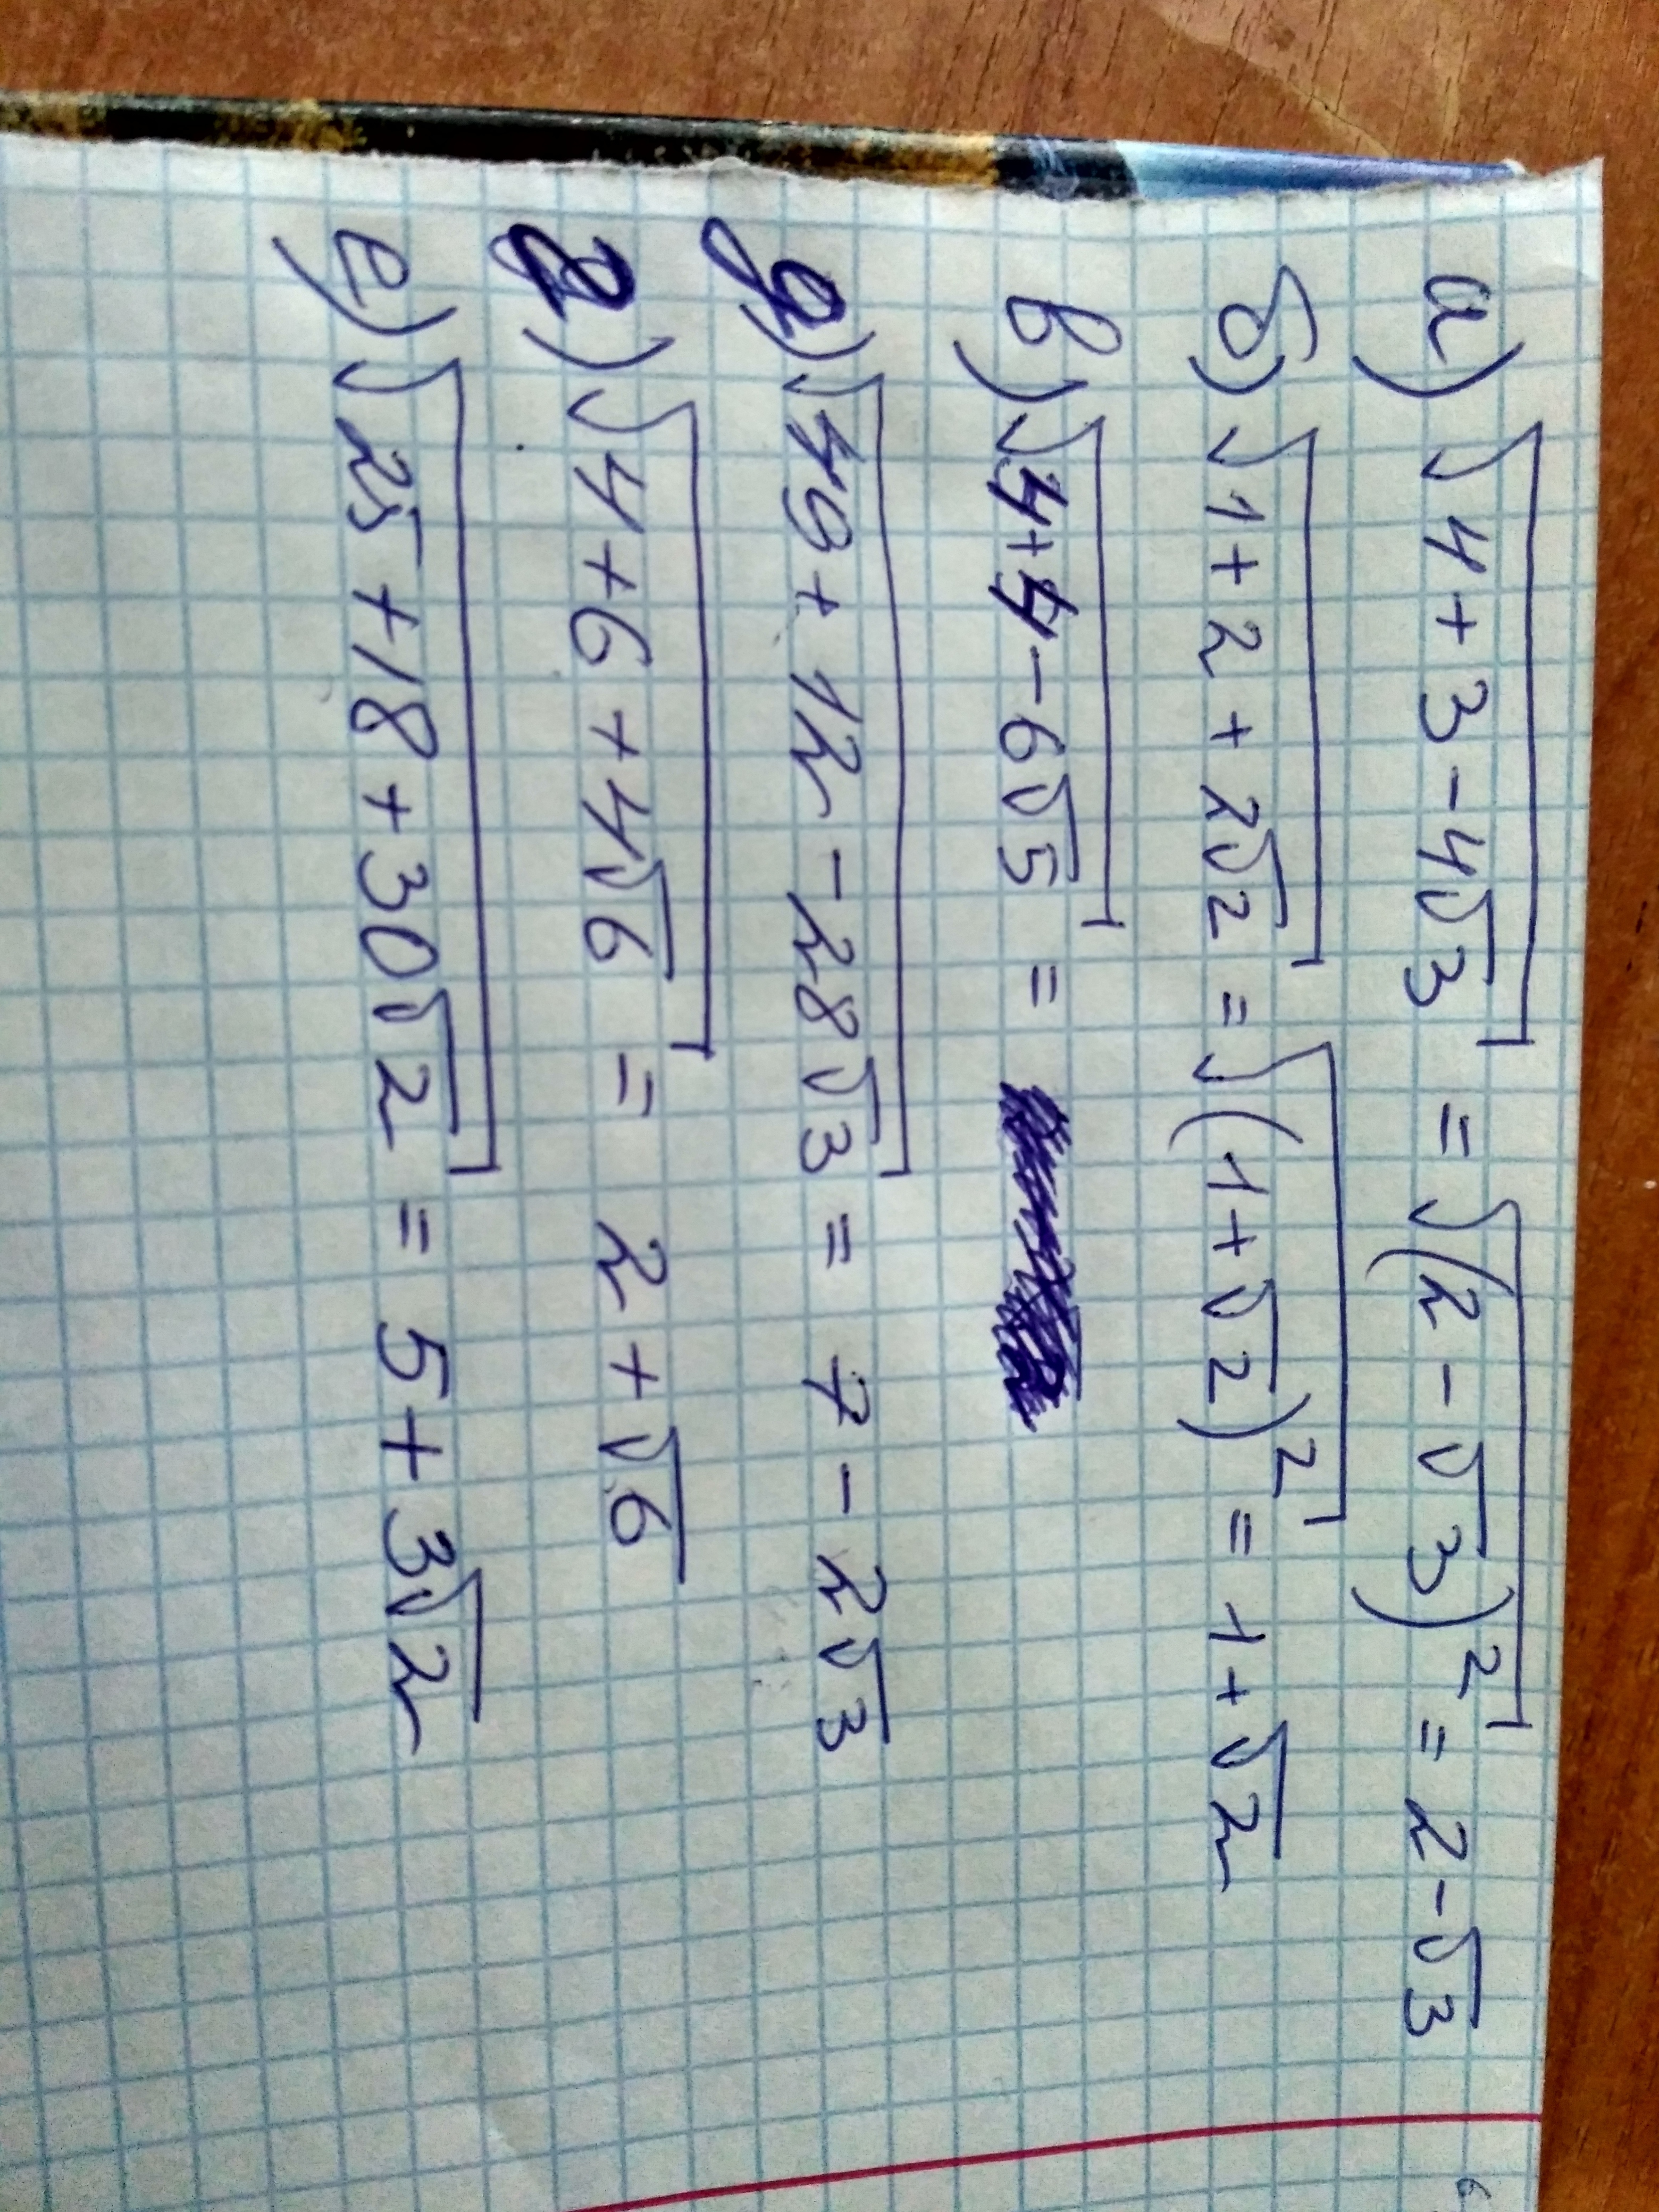 а) √(4+3-4√3) = √((2-√3)²) = 2-√3
б) √(1+2+2√2) = √((1+√2)²) = 1+√2
в) √(4+4-6√5) =
д) √(49+12-28√3) = 7-2√3
г) √(4+6+4√6) = 2+√6
е) √(25+18+30√2) = 5+3√2